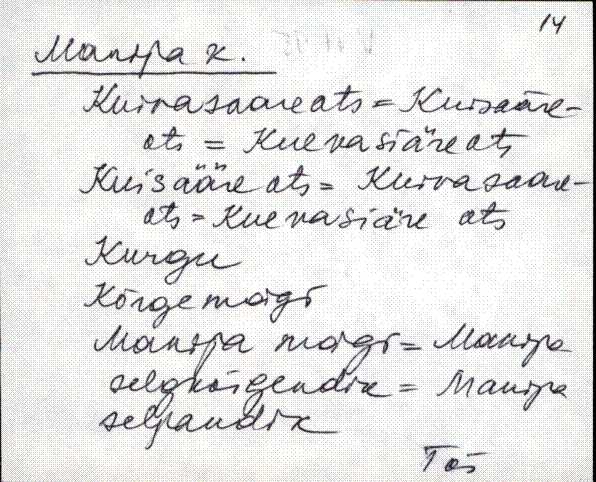 14
Manija k.
Kuivasaare ots = Kuisääre-
ots = Kuevasiäre ots
Kuisääre ots = Kuivasaare-
ots = Kuevasiäre ots
Kurgu
Kõrgemägi
Manija mägi = Manija
selgkõigendik = Manija
seljandik
Tõs